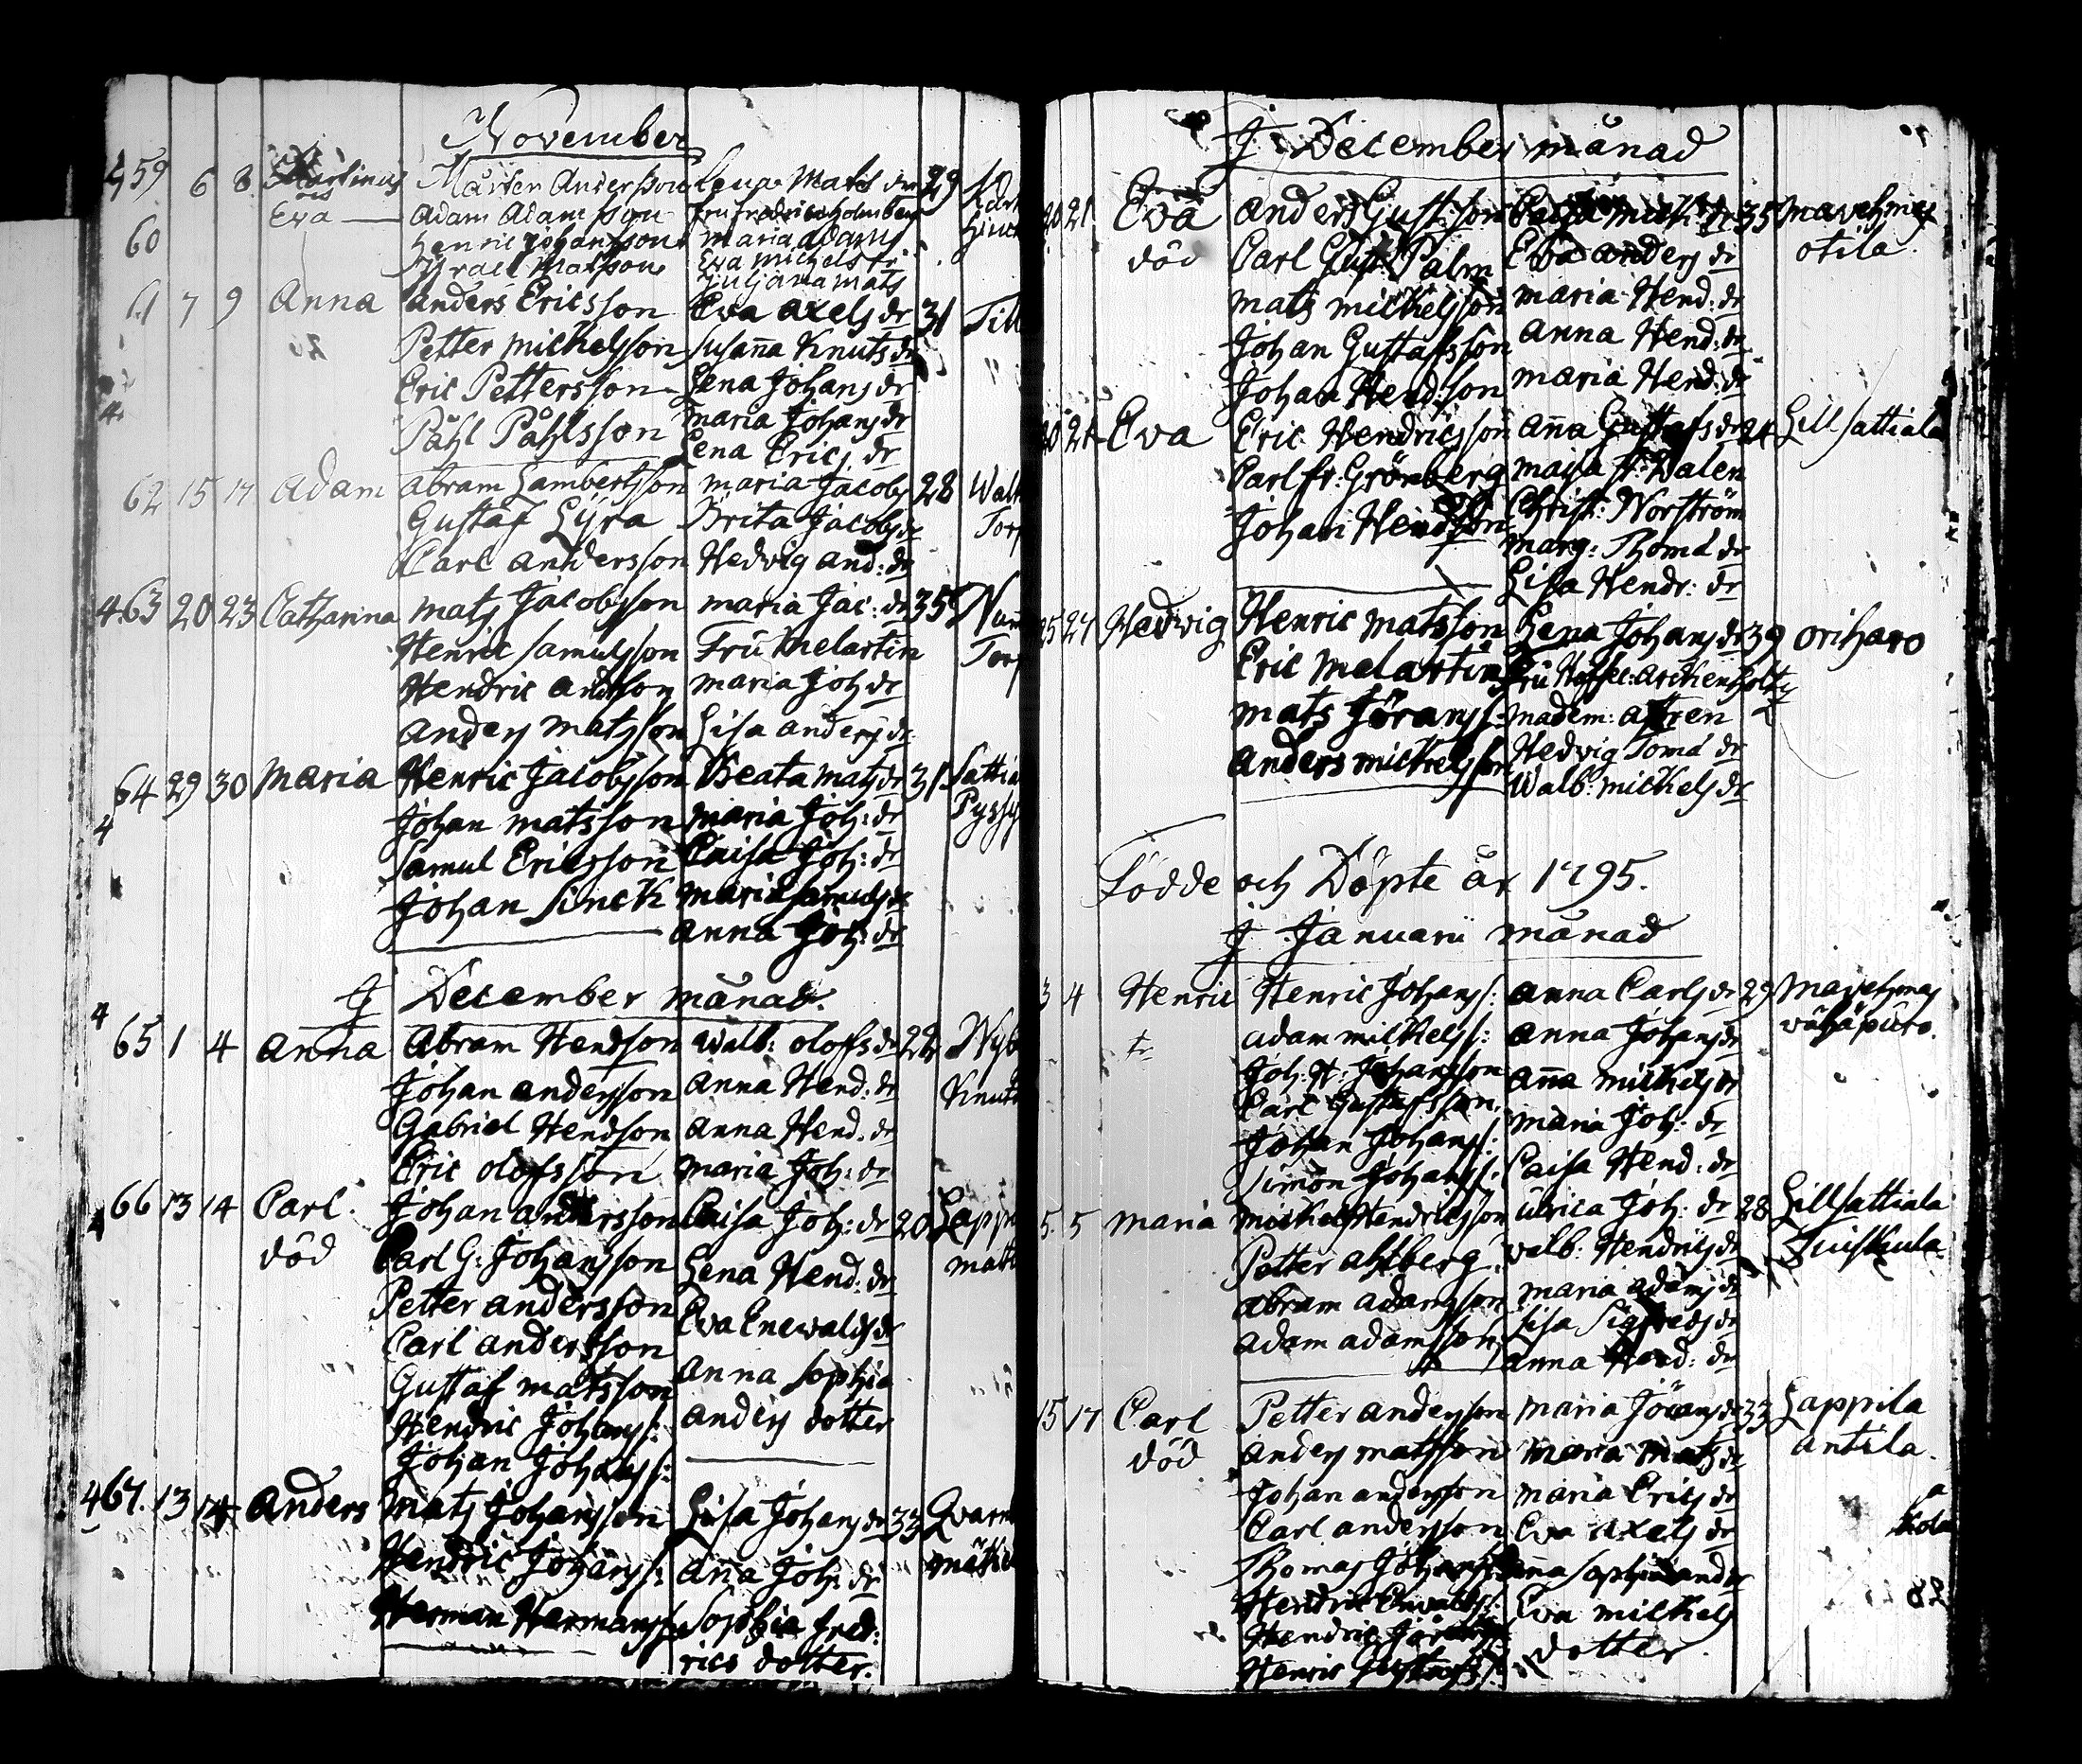 November
459 6 8 Martinus Mårten Andersson Lena Mats dr 29
60 Eva Adam Adamsson
Henric Johansson Maria Adams
Israel Matsson Eva Michels dr
Juliana Mats
61 7 9 Anna Anders Ericsson Eva Axels dr 31 Till
Petter Michelsson Susana Knuts dr
Eric Pettersson Lena Johans dr
Påhl Påhlsson Maria Johans dr
Lena Erics dr
62 15 17 Adam Abram Lambertsson Maria Jacobs 28
Gustaf Lyra Brita Jacobs dr
Carl Andersson Hedvig And: dr
463 20 23 Catharina Mats Jacobsson Maria Jac: dr 35
Henric Samulsson Fru Melartin
Hendric Andsson Maria Joh dr
Anders Matsson Lisa Anders dr
64 29 30 Maria Henric Jacobsson Beata Mats dr 31
Johan Matsson Maria Joh: dr
Samul Ericsson Caisa Joh: dr
Johan Sinck Maria Samuls dr
Anna Joh: dr
J December månad.
65 1 4 Anna Abram Hendson Walb: Olofs dr 22
Johan Andersson Anna Hend: dr
Gabriel Hendson Anna Hend. dr
Eric Olofsson Maria Joh: dr
66 13 14 Carl Johan Andersson Caisa Joh: dr 20
död Carl G: Johansson Lena Hend: dr
Petter Andersson Eva Enewalds dr
Carl Andersson
Gustaf Matsson Anna Sophia
Hendric Johans s: Anders dotter
Johan Johans s:
467. 13 14 Anders Mats Johansson Lisa Johans dr 33
Hendric Johans s: Aña Joh: dr
Herman Hermans s: Sophia Fred:
rics dotter.
J December månad
20 21 Eva Anders Gust:son Caisa Mich: dr 35
död Carl Gust: Palm Eva Anders dr otila
Mats Michelsson Maria Hend: dr
Johan Gustafsson Anna Hend: dr
Johan Hendson Maria Hend: dr
20 21 Eva Eric Hendricsson Aña Gustafs dr 24 Lillsattiala
Carl fr: Grönberg
Johan Hendson Christ: Norström
Marg: Thoma dr
Lisa Hendr: dr
25 27 Hedvig Henric Matsson Lena Johans dr 39 Oriharo
Eric Melartin
Mats Jörans s: Madem:
Anders Michelsson Hedvig Toma dr
Walb: Michels dr
Födde och Döpte år 1795.
J Januarii månad
3 4 Henric Henric Johans s: Anna Carls dr 29
Adam Michels s: Anna Johans dr
Joh: H: Johansson Aña Michels dr
Carl Gustafsson Maria Joh: dr
Johan Johans s:
Simon Johans s: Caisa Hend: dr
5. 5 Maria Michel Hendricsson Ulrica Joh: dr 28 Lillsattiala
Petter Ahlberg Walb: Hendrics dr
Abram Adamsson Maria Adams dr
Adam Adamsson Lisa Sigfreds dr
Anna Hend: dr
15 17 Carl Petter Andersson Maria Jörans dr 33 Lappila
död Anders Matsson Maria Mats dr Antila
Johan Andersson Maria Erics dr
Carl Andersson Eva Axels dr
Thomas Johans s: Aña Sophia And dr
Hendric Enwalds s: Eva Michels
dotter
Henric Gustafs s: